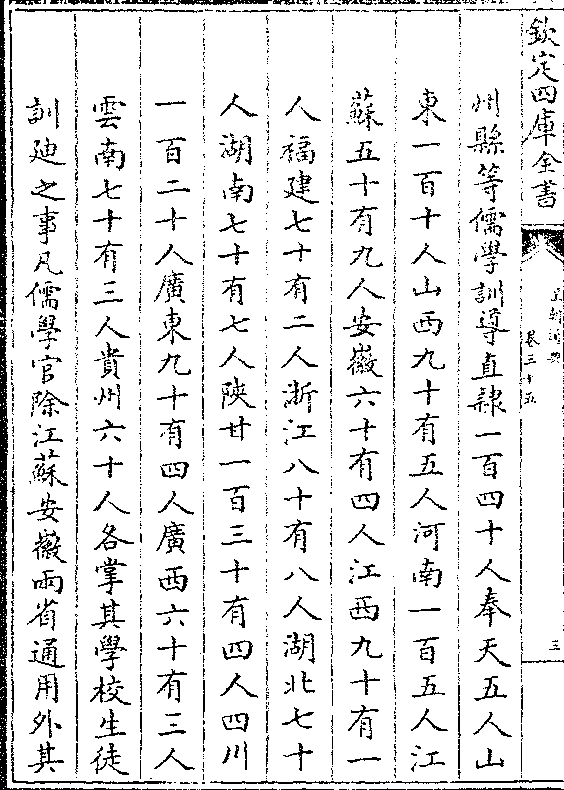 欽定四庫全書
卷三十五
三
州縣等儒學訓導直隷一百四十人奉天五人山
東一百十人山西九十有五人河南一百五人江
蘇五十有九人安徽六十有四人江西九十有一
人福建七十有二人浙江八十有八人湖北七十
人湖南七十有七人陜甘一百三十有四人四川
一百二十人廣東九十有四人廣西六十有三人
雲南七十有三人貴州六十人各掌其學校生徒
訓廸之事凡儒學官除江蘇安徽兩省通用外其